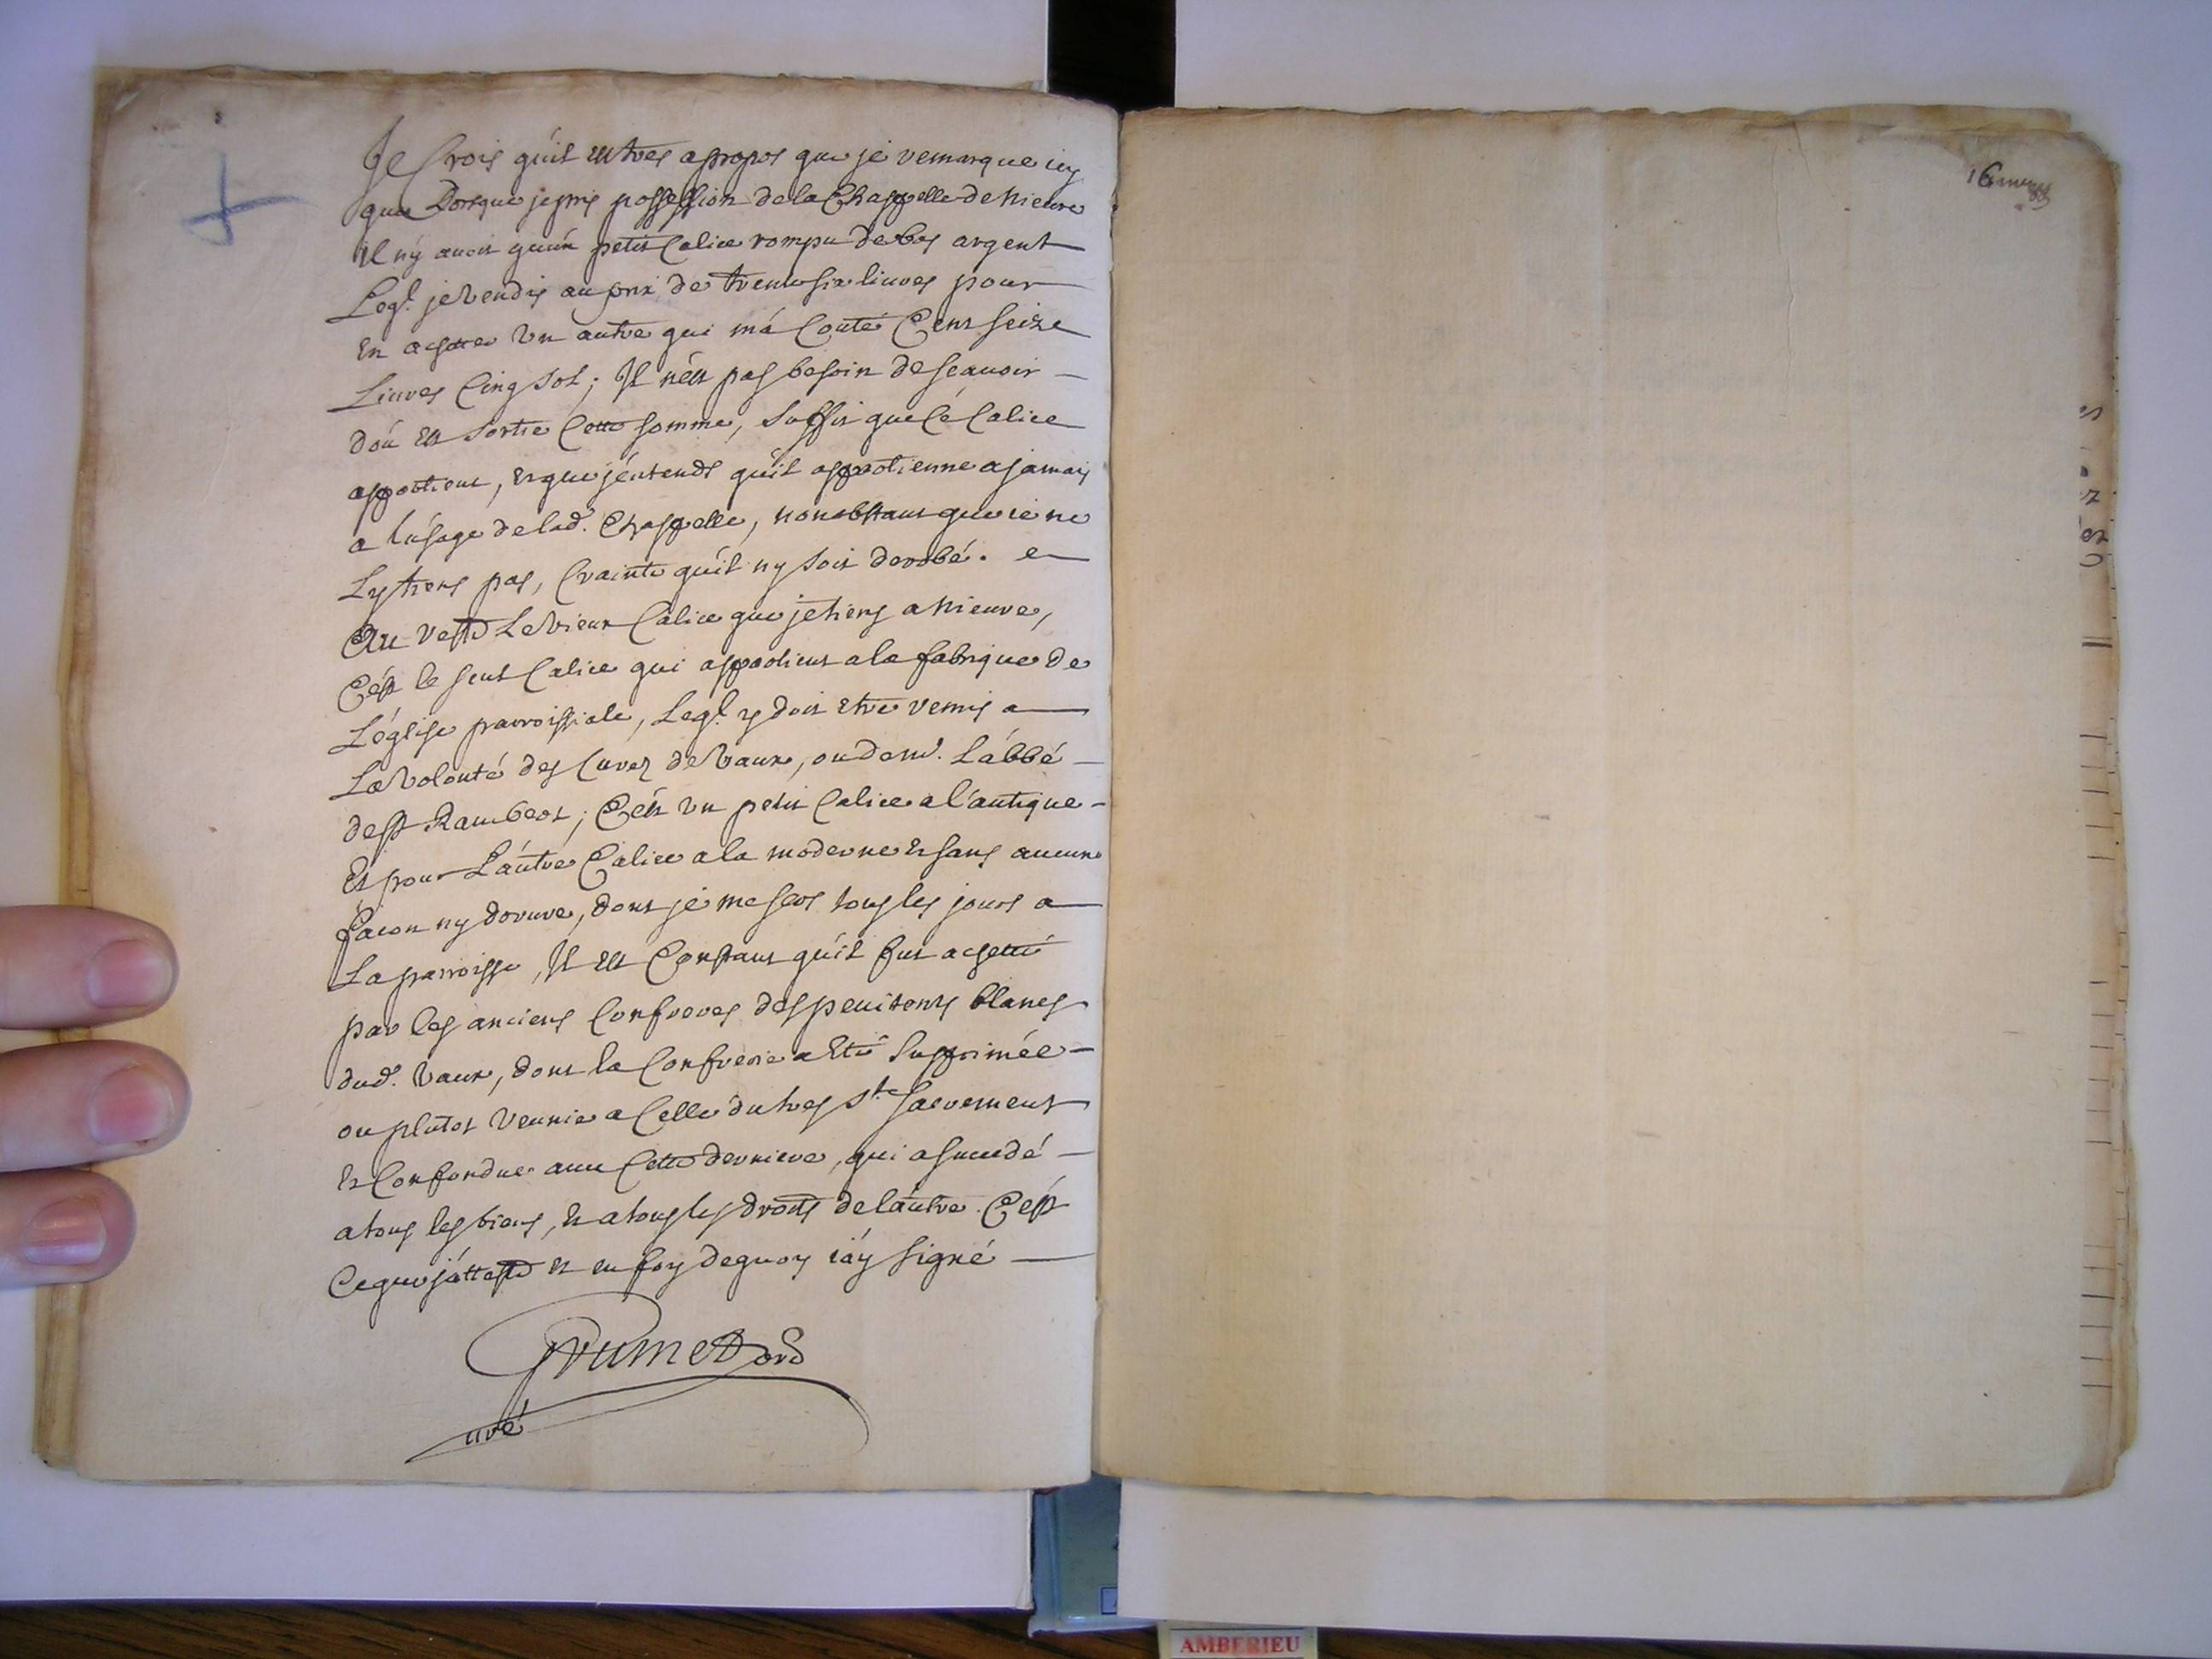 Je Crois qu'il est tres apropos que je remarque icy
que Lorsque je pris possession de la Chappelle de Nieure
Il n'y avoit qu'un petit Calice rompu de bas argent
Leql. je vendis au prix de trente six livres pour
En achetter un autre qui m'a Couté Cent seize
Livres Cinq sols; Il n'est pas besoin de scavoir
d'où Est sortie Cette somme, suffit que Cé Calice
appartient, et que j'entends qu'il appartienne a jamais
a l'usage de lad. Chappelle, nonobstant que ie ne
L'y tiens pas, Crainte qu'il n'y soit derobé. e
Au reste Le vieux Calice que je tiens a Nieure,
C'est le seul Calice qui appartient a la fabrique de
L'église parroissiale, Leql. y doit etre remis a
La volonté des Curez de Vaux, ou de mr. L'abbé
de st Rambert; C'est un petit Calice a l'antique
Et pour L'autre Calice a la moderne et sans aucune
facon ny dorure, dont je me sers tous les jours a
La parroisse, Il est Constant qu'il fut achetté
par les anciens Confreres des penitents blancs
dud. Vaux, dont la Confrerie a Eté supprimée
ou plutot reunie a Celle du tres st. sacrement
et Confondue avec Cette derniere, qui a succedé
a tous les biens, et a tous les droits de l'autre. C'est
Ce que j'atteste et en foy de quoy j'ay signé
Grumet
uré
16
AMBERIEU